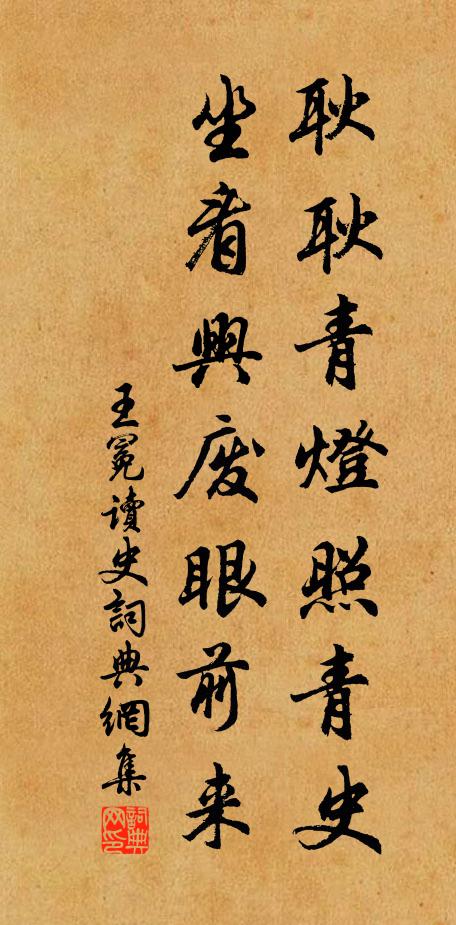 耿耿青燈照青史
坐看興废眼前来
王冕讀史詞典網集
詞典网印